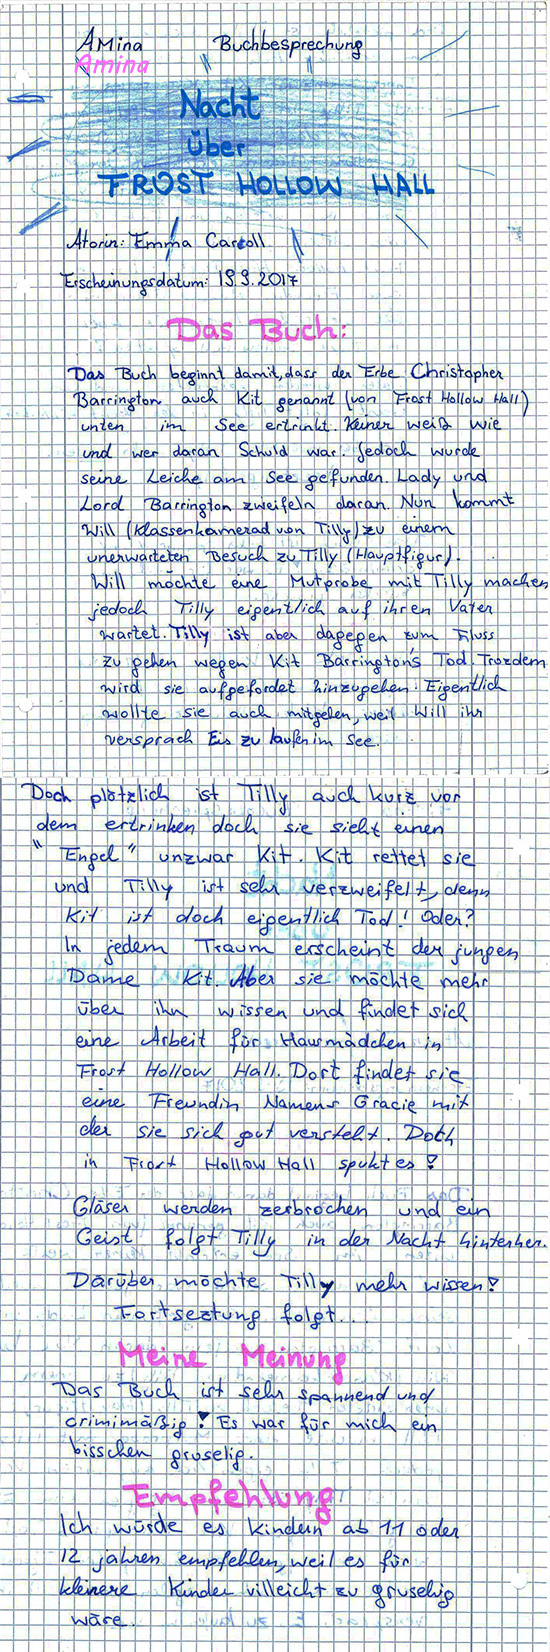 Amina Buchbesprechung
Amina
Nacht
über
FROST HOLLOW HALL
Atorin: Emma Carroll
Erscheinungsdatum: 19.9.2017
Das Buch:
Das Buch beginnt damit, dass der Erbe Christopher
Barrington auch Kit genannt (von Frost Hollow Hall)
unten im See ertrinkt. Keiner weiß wie
und wer daran Schuld war. Jedoch wurde
seine Leiche am See gefunden. Lady und
Lord Barrington zweifeln daran. Nun kommt
Will (Klassenkamerad von Tilly) zu einem
unerwarteten Besuch zu Tilly (Hauptfigur).
Will möchte eine Mutprobe mit Tilly machen
jedoch Tilly eigentlich auf ihren Vater
wartet. Tilly ist aber dagegen zum Fluss
zu gehen wegen Kit Barrington's Tod. Trozdem
wird sie aufgefordet hinzugehen. Eigentlich
wollte sie auch mitgehen, weil Will ihr
versprach Eis zu laufen im See.
Doch plötzlich ist Tilly auch kurz vor
dem ertrinken doch sie sieht einen
"Engel" unzwar Kit. Kit rettet sie
und Tilly ist sehr verzweifelt, denn
Kit ist doch eigentlich Tod! Oder?
In jedem Traum erscheint der jungen
Dame Kit. Aber sie möchte mehr
über ihn wissen und findet sich
eine Arbeit für Hausmädchen in
Frost Hollow Hall. Dort findet sie
eine Freundin Namens Gracie mit
der sie sich gut versteht. Doch
in Frost Hollow Hall spukt es!
Gläser werden zerbrochen und ein
Geist folgt Tilly in der Nacht hinterher.
Darüber möchte Tilly mehr wissen!
Fortseztung folgt...
Meine Meinung
Das Buch ist sehr spannend und
crimimäßig! Es war für mich ein
bisschen gruselig.
Empfehlung
Ich würde es Kindern ab 11 oder
12 jahren empfehlen, weil es für
kleinere Kinder villeicht zu gruselig
wäre.